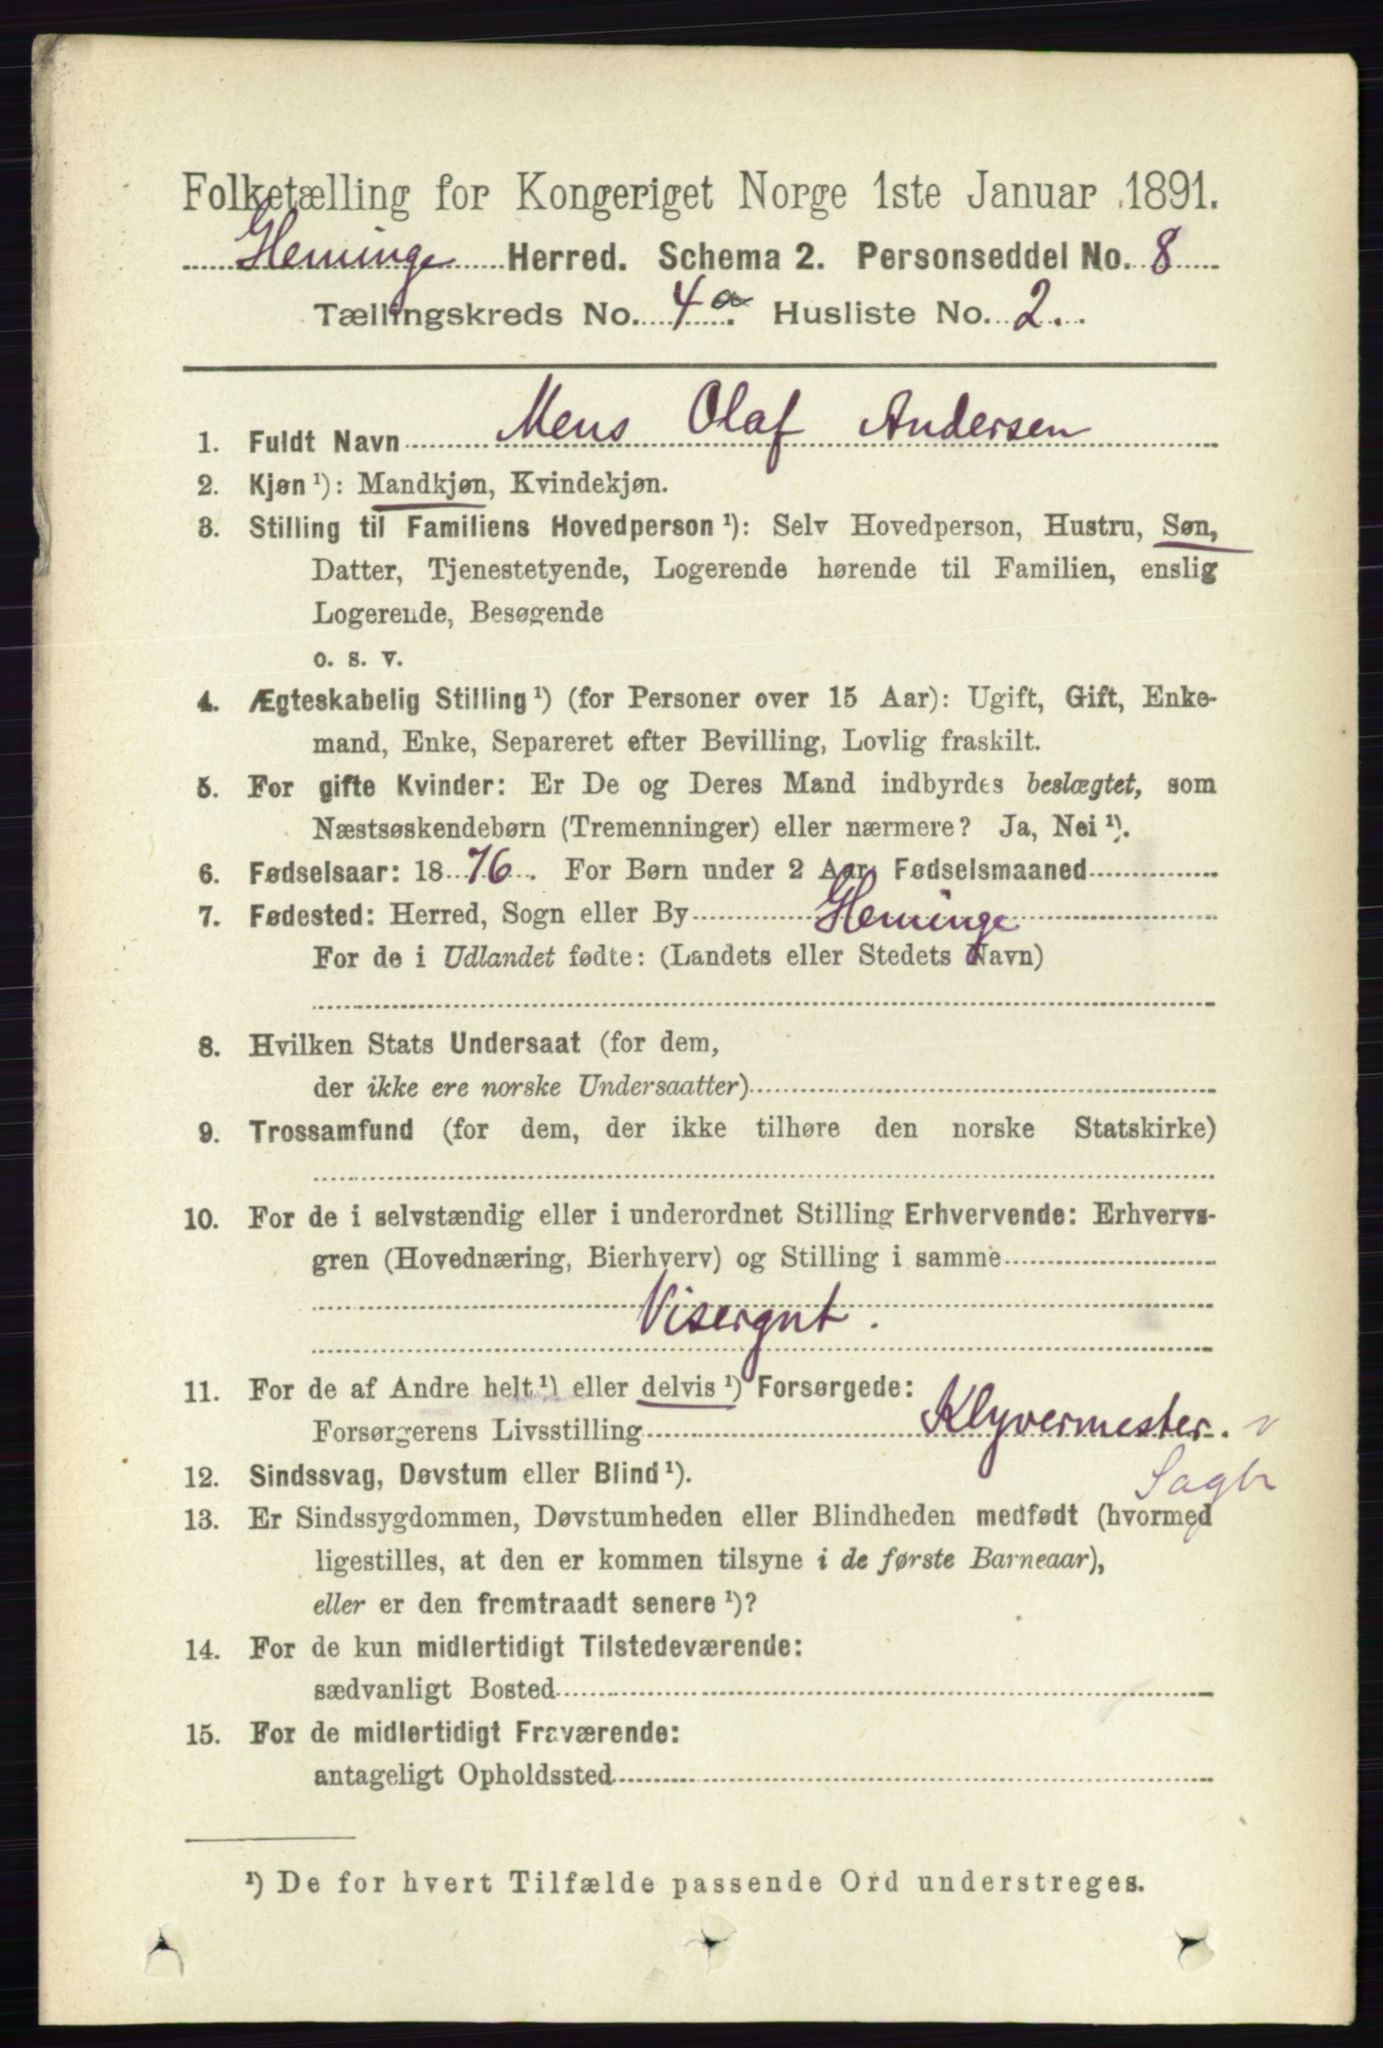 Folketælling for Kongeriget Norge 1ste Januar 1891.
Glemminge Herred. Schema 2. Personseddel No. 8
Tællingskreds No. 4a. Husliste No. 2.
1. Fuldt Navn Mens Olaf Andersen
2. Kjøn ¹): Mandkjøn, Kvindekjøn.
3. Stilling til Familiens Hovedperson ¹): Selv Hovedperson, Hustru, Søn,
Datter, Tjenestetyende, Logerende hørende til Familien, enslig
Logerende, Besøgende
o. s. v.
4. Ægteskabelig Stilling ¹) (for Personer over 15 Aar): Ugift, Gift, Enke-
mand, Enke, Separeret efter Bevilling, Lovlig fraskilt.
5. For gifte Kvinder: Er De og Deres Mand indbyrdes beslægtet, som
Næstsøskendebørn (Tremenninger) eller nærmere? Ja, Nei ¹).
6. Fødselsaar: 1876. For Børn under 2 Aar, Fødselsmaaned
7. Fødested: Herred, Sogn eller By Glemminge
For de i Udlandet fødte: (Landets eller Stedets Navn)
8. Hvilken Stats Undersaat (for dem,
der ikke ere norske Undersaatter)
9. Trossamfund (for dem, der ikke tilhøre den norske Statskirke)
10. For de i selvstændig eller i underordnet Stilling Erhvervende: Erhvervs-
gren (Hovednæring, Bierhverv) og Stilling i samme
Visergut.
11. For de af Andre helt ¹) eller delvis ¹) Forsørgede:
Forsørgerens Livsstilling Klyvermester.
Sagbr
12. Sindssvag, Døvstum eller Blind ¹).
13. Er Sindssygdommen, Døvstumheden eller Blindheden medfødt (hvormed
ligestilles, at den er kommen tilsyne i de første Barneaar),
eller er den fremtraadt senere ¹)?
14. For de kun midlertidigt Tilstedeværende:
sædvanligt Bosted
15. For de midlertidigt Fraværende:
antageligt Opholdssted
¹) De for hvert Tilfælde passende Ord understreges.